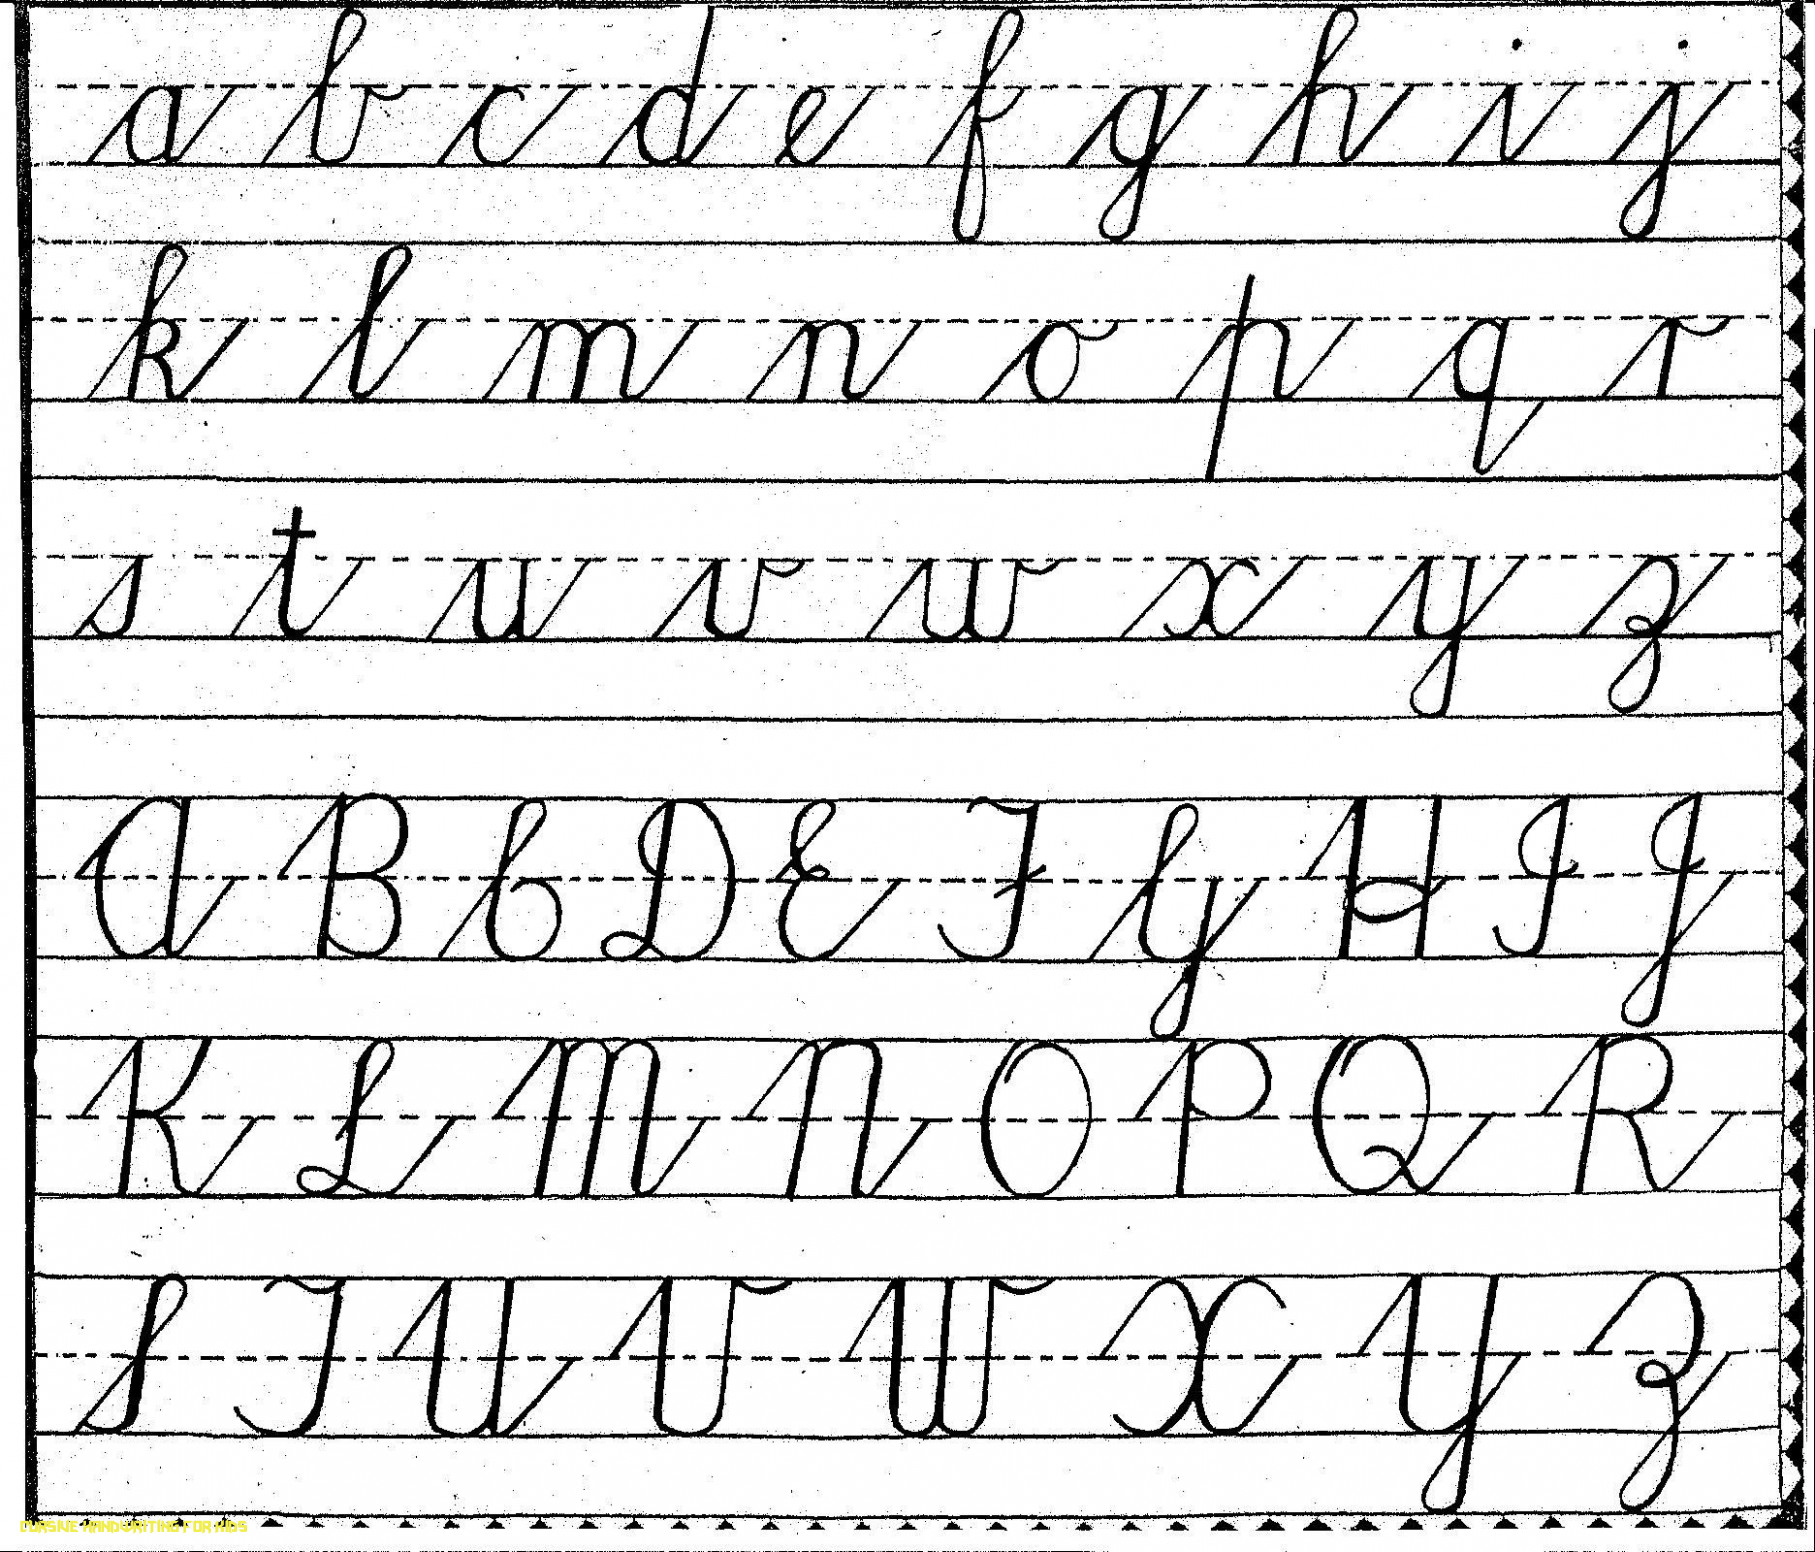 a b c d e f g h i j
k l m n o p q r
s t u v w x y z
A B C D E F G H I J
K L M N O P Q R
S T U V W X Y Z
CURSIVE HANDWRITING FOR KIDS